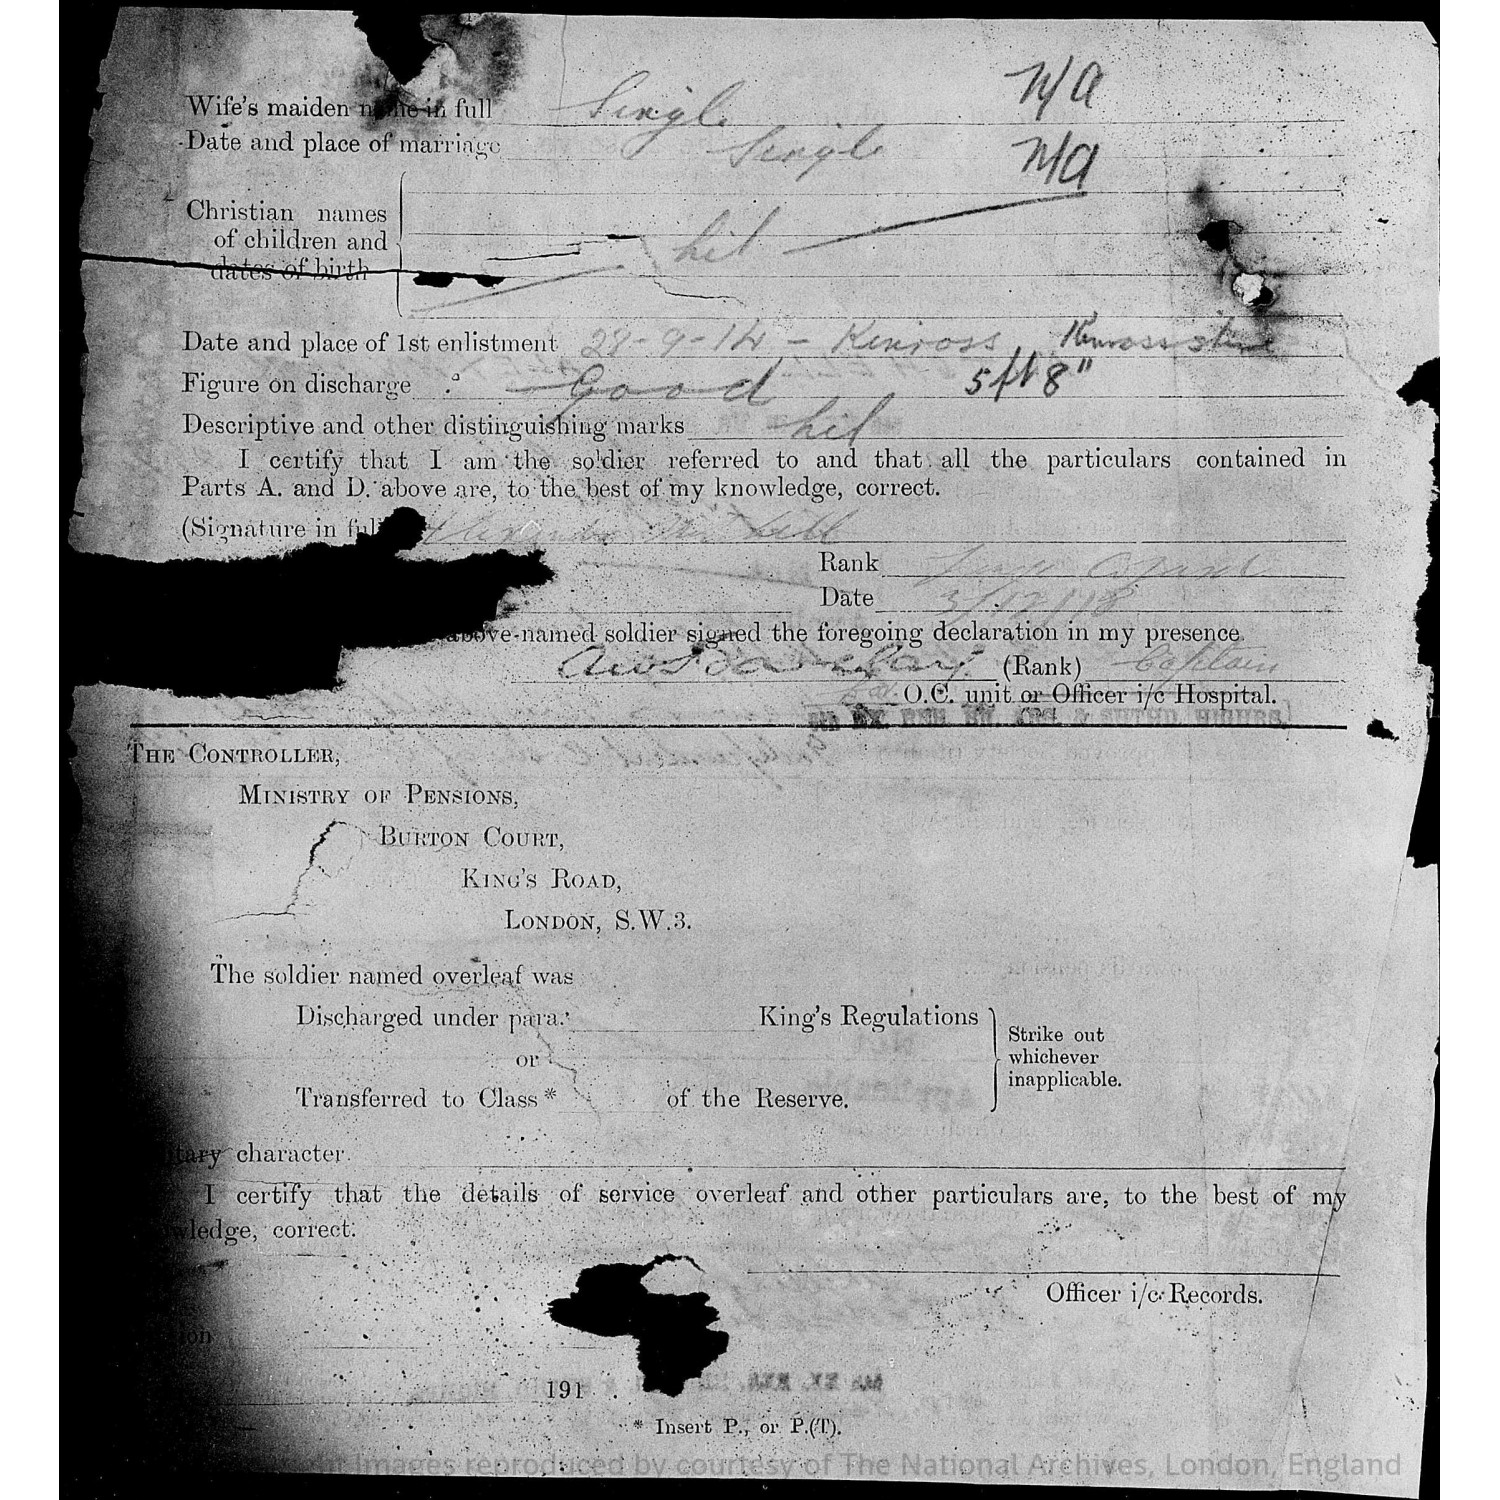 Wife's maiden name in full Single N/A
Date and place of marriage Single N/A
Christian names
of children and
dates of birth
Nil
Date and place of 1st enlistment 29-9-14 - Kinross Kinross shire
Figure on discharge Good 5 ft 8"
Descriptive and other distinguishing marks Nil
I certify that I am the soldier referred to and that all the particulars contained in
Parts A. and D. above are, to the best of my knowledge, correct.
(Signature in full Alexander Mitchell
Rank
Date 3/12/18
above-named soldier signed the foregoing declaration in my presence.
(Rank) Captain
O.C. unit or Officer i/c Hospital.
THE CONTROLLER,
MINISTRY OF PENSIONS,
BURTON COURT,
KING'S ROAD,
LONDON, S.W.3.
The soldier named overleaf was
Discharged under para. King's Regulations
or
Transferred to Class * of the Reserve.
Strike out
whichever
inapplicable.
tary character.
I certify that the details of service overleaf and other particulars are, to the best of my
wledge, correct.
Officer i/c Records.
ion
191 .
* Insert P., or P.(T).
ght Images reproduced by courtesy of The National Archives, London, England